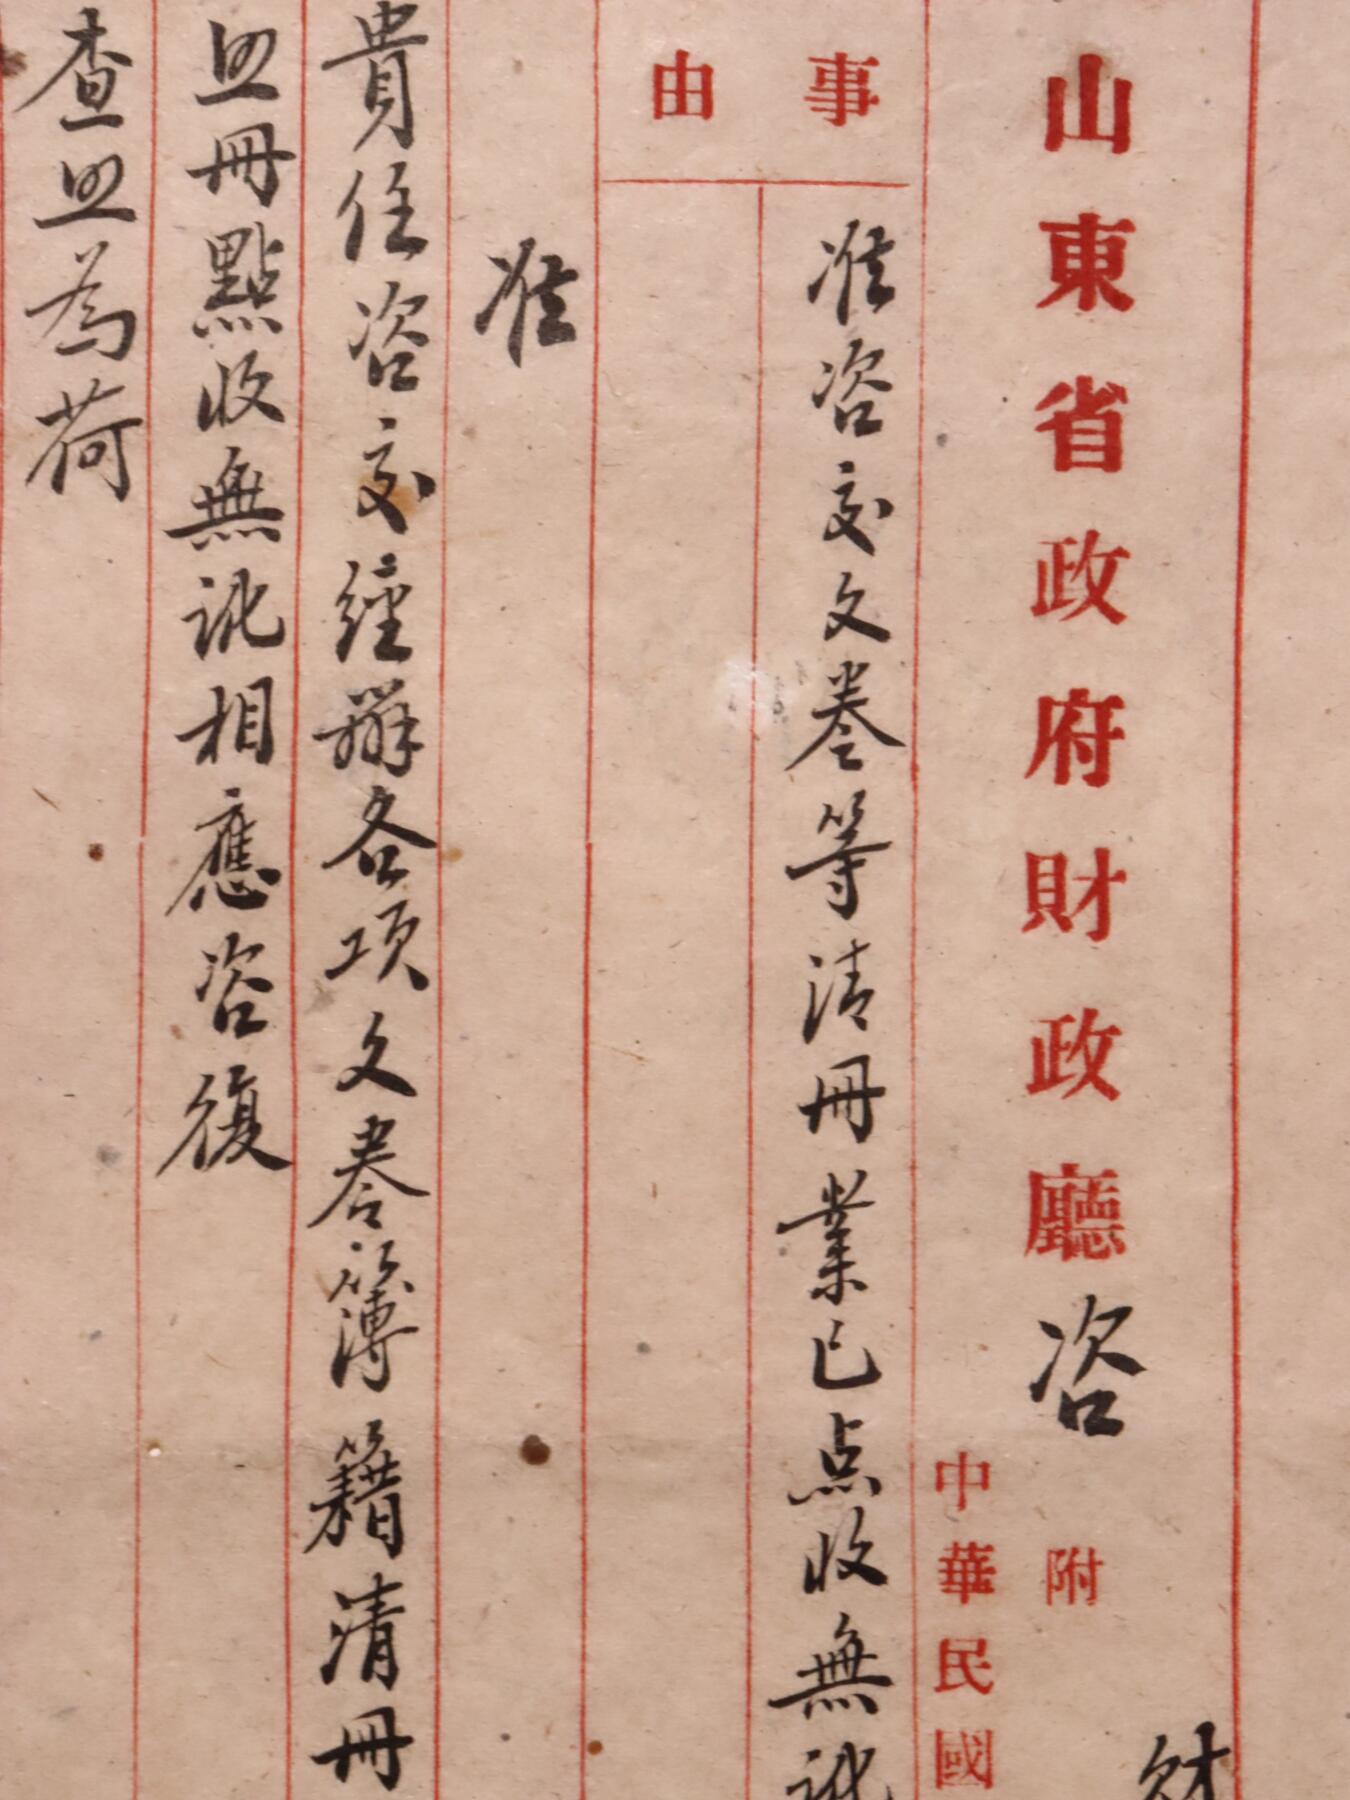 財
山東省政府財政廳咨 附
中華民國
事由
准咨交文卷等清冊業已点收無訛
准
貴任咨交經辦各項文卷簿籍清冊
照冊點收無訛相應咨復
查照為荷